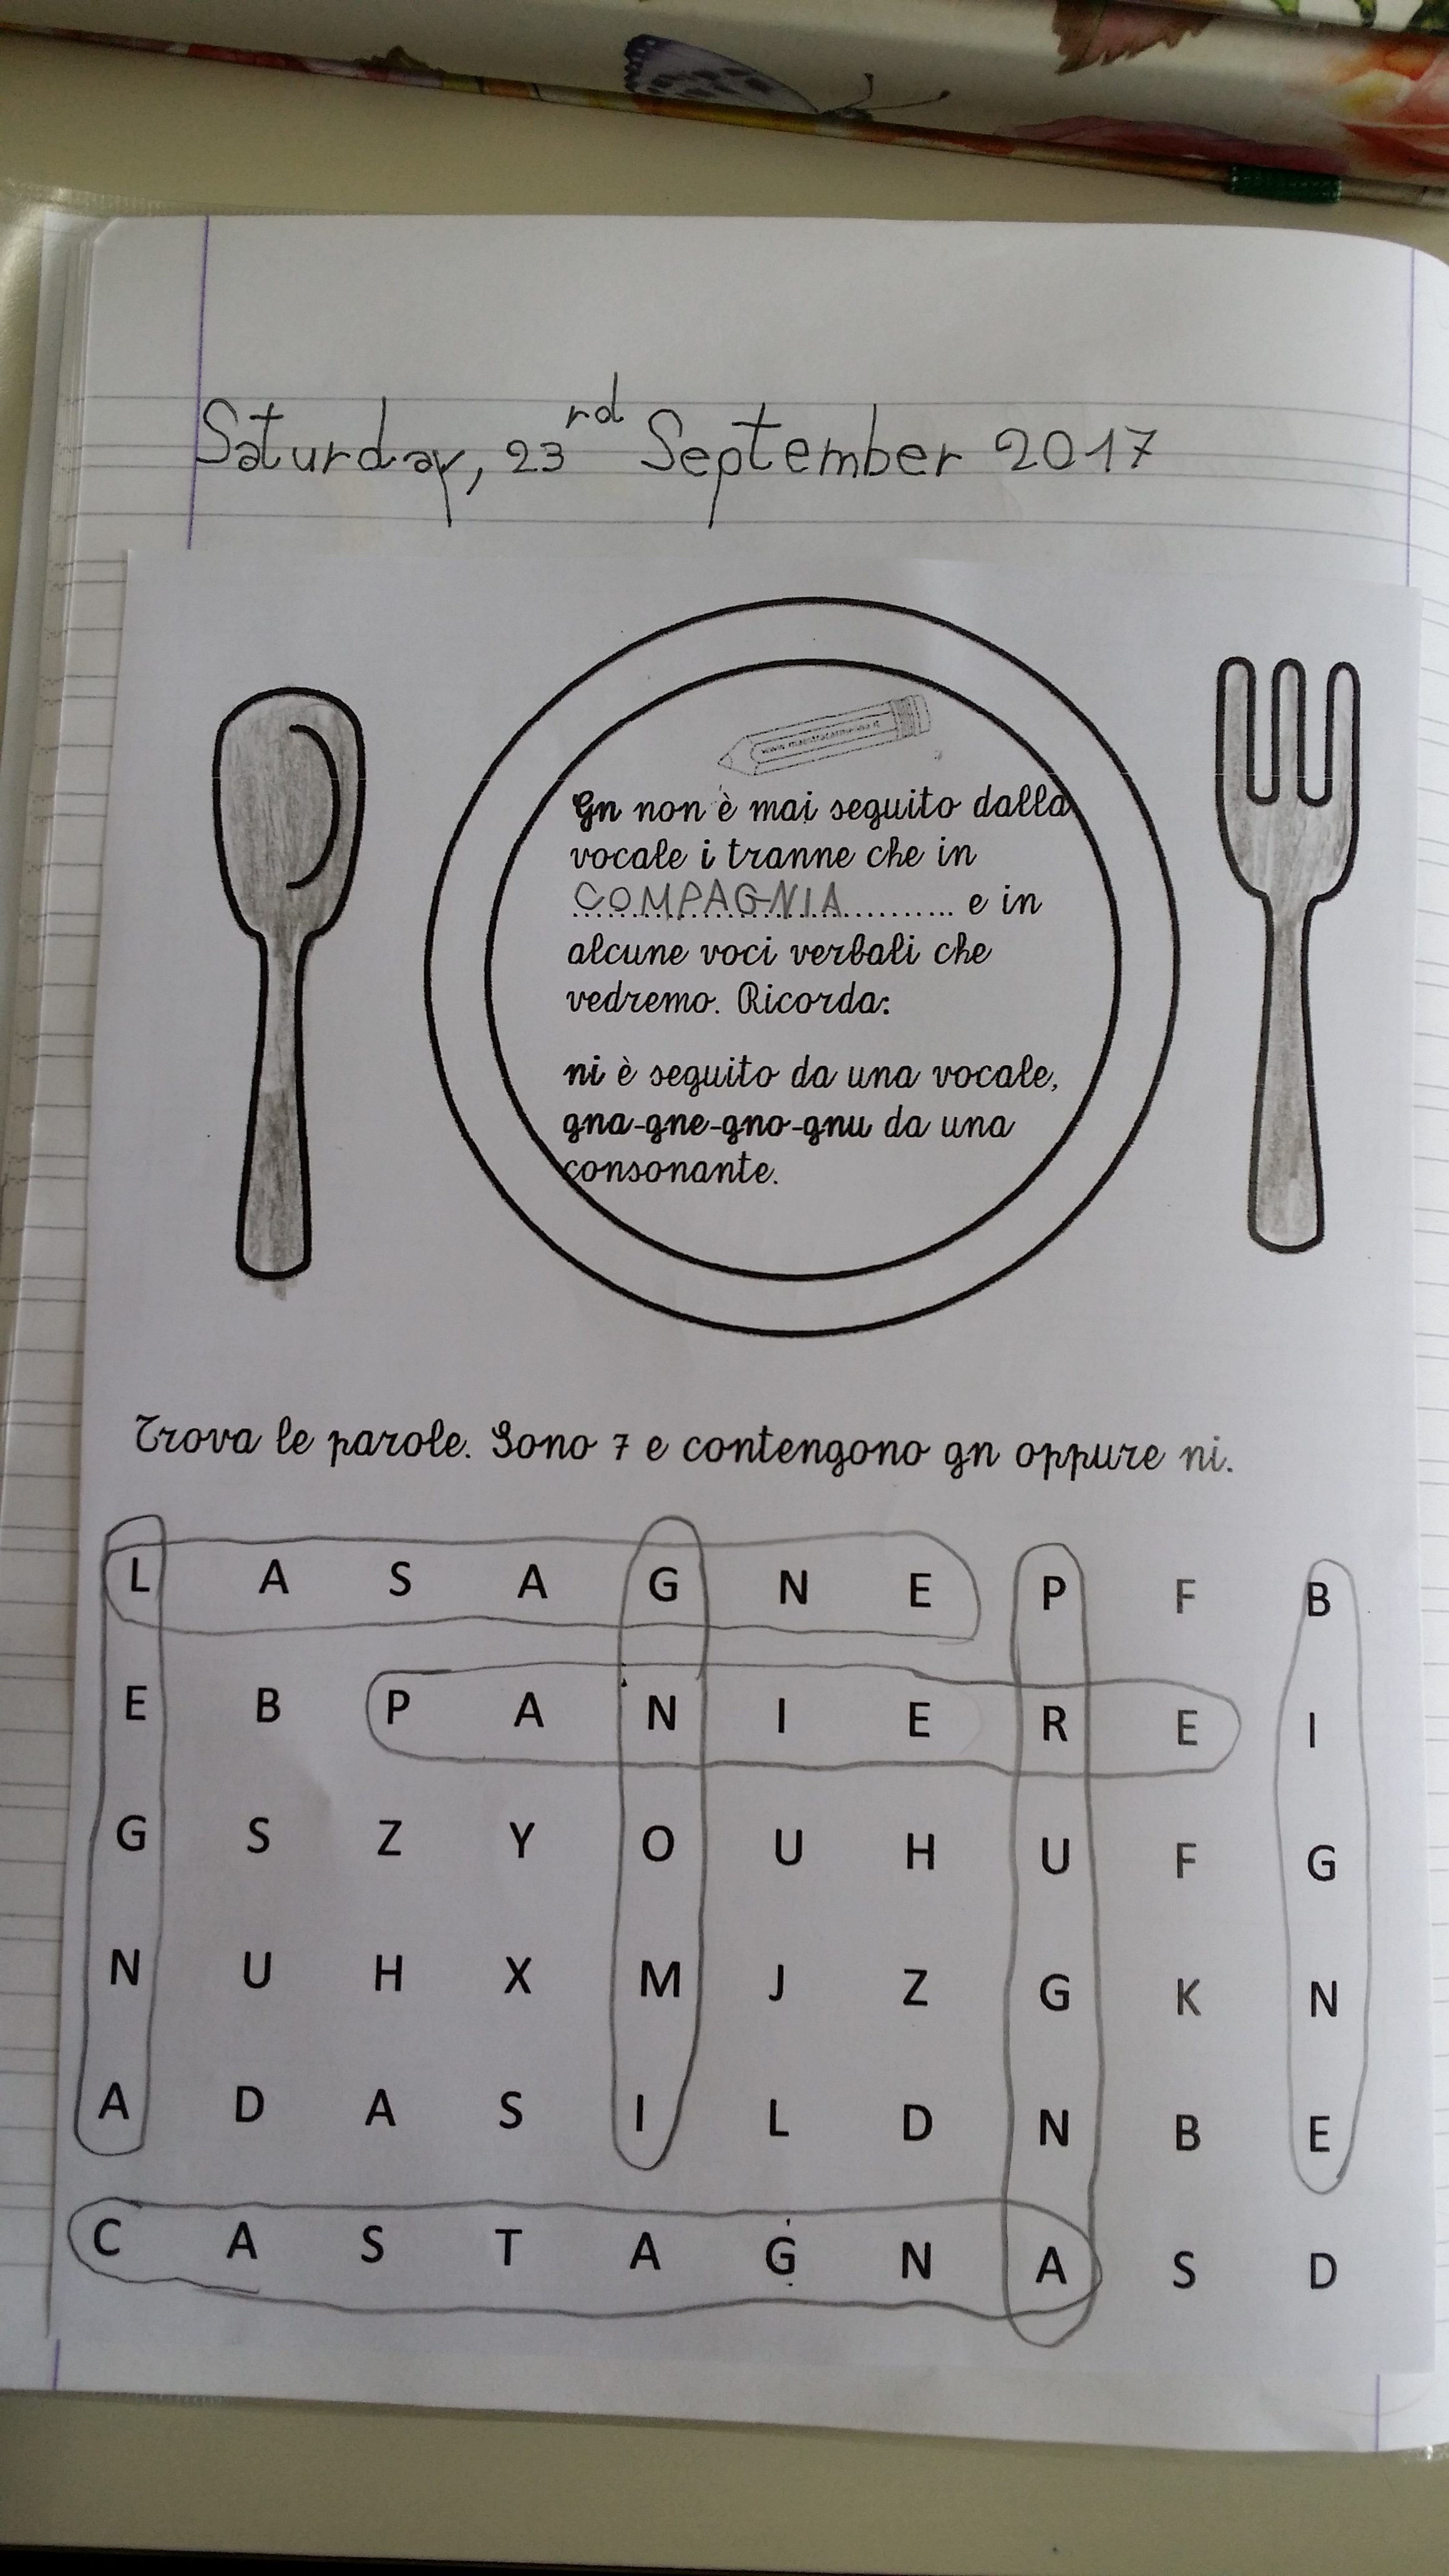 Saturday, 23rd September 2017
Gn non è mai seguito dalla
vocale i tranne che in
COMPAGNIA............ e in
alcune voci verbali che
vedremo. Ricorda:
ni è seguito da una vocale,
gna-gne-gno-gnu da una
consonante.
Trova le parole. Sono 7 e contengono gn oppure ni.
L A S A G N E P F B
E B P A N I E R E I
G S Z Y O U H U F G
N U H X M J Z G K N
A D A S I L D N B E
C A S T A G N A S D